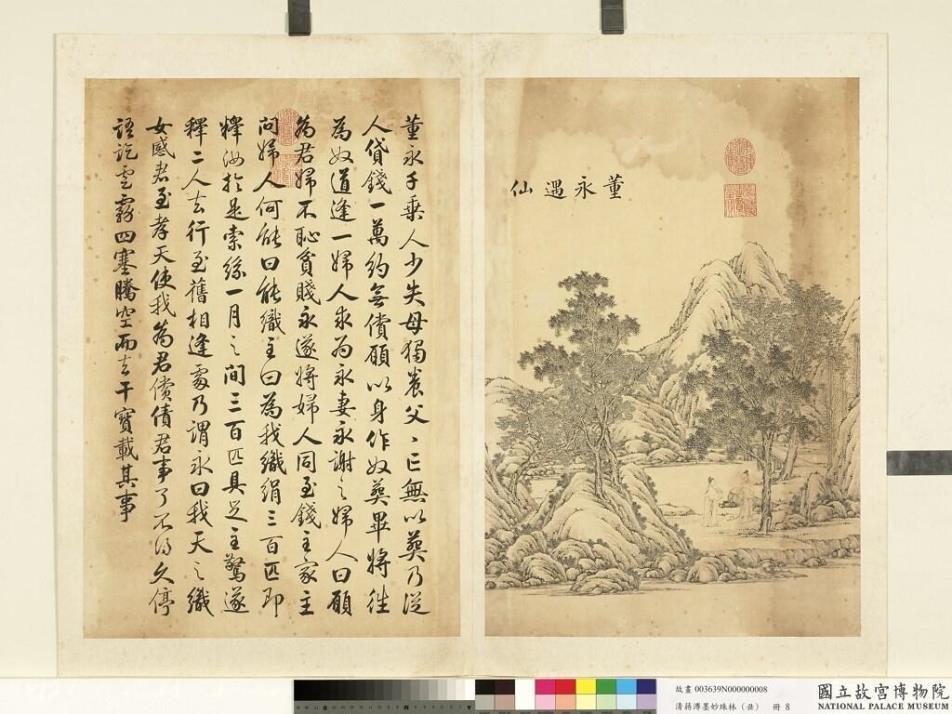 董永遇仙
董永千乘人少失母獨養父父亡無以葬乃從
人貸錢一萬約無償願以身作奴葬畢將往
為奴道逢一婦人求為永妻永謝之婦人曰願
為君婦不恥貧賤永遂將婦人同至錢主家主
問婦人何能曰能織主曰為我織絹三百匹即
釋汝於是索絲一月之間三百匹具足主驚遂
釋二人去行至舊相逢處乃謂永曰我天之織
女感君至孝天使我為君償債君事了不得久停
語訖雲霧四塞騰空而去干寶載其事
故畫 003639N000000008
清蔣溥墨妙珠林（岳） 冊 8
國立故宮博物院
NATIONAL PALACE MUSEUM